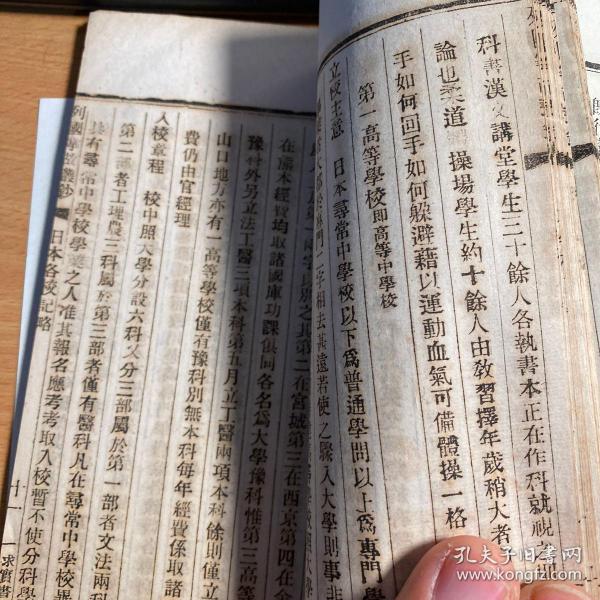 科書漢文講堂學生三十餘人各執書本正在作科就視
論也柔道 操場學生約十餘人由敎習擇年歲稍大者
手如何回手如何躲避藉以運動血氣可備體操一格
第一高等學校即高等中學校
立校主意 日本尋常中學校以下爲普通學問以上爲專門學
門二字相去甚遠若使之驟入大學則事非
之其第二在宮城第三在西京第四在金
在熊本經費均取諸國庫功課俱同各名爲大學豫科惟第三高等
豫科外另立法工醫三項本科第五月立丁醫兩項本科餘則僅立
山口地方亦有一高等學校僅有豫科別無本科每年經費係取諸
費仍由官經理
入校章程 校中照大學分設六科又分三部屬於第一部者文法兩科
第二部者工理農三科屬於第三部者僅有醫科凡在尋常中學校畢
有尋常中學校學之人准其報名應考考取入校暫不使分科學
列國事叢鈔 日本各校記略 十一 求實書
孔夫子旧书网
www.kongfz.com